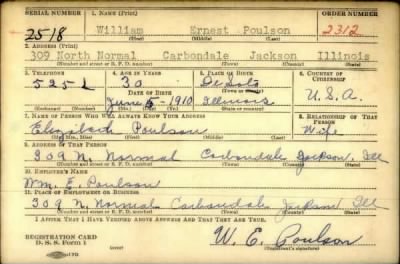 SERIAL NUMBER 1. NAME (Print) ORDER NUMBER
2518 William Ernest Poulson 2312
(First) (Middle) (Last)
2. ADDRESS (Print)
309 North Normal Carbondale Jackson Illinois
(Number and street or R. F. D. number) (Town) (County) (State)
3. TELEPHONE 4. AGE IN YEARS 5. PLACE OF BIRTH 6. COUNTRY OF CITIZENSHIP
525 L 30 De Soto
DATE OF BIRTH (Town or county)
June 5-1910 Illinois U.S.A.
(Exchange) (Number) (Mo.) (Day) (Yr.) (State or country)
7. NAME OF PERSON WHO WILL ALWAYS KNOW YOUR ADDRESS 8. RELATIONSHIP OF THAT PERSON
Elizabeth Poulson Wife
(Mr., Mrs., Miss) (First) (Middle) (Last)
9. ADDRESS OF THAT PERSON
309 N. Normal Carbondale Jackson Ill
(Number and street or R. F. D. number) (Town) (County) (State)
10. EMPLOYER'S NAME
Wm. E. Poulson
11. PLACE OF EMPLOYMENT OR BUSINESS
309 N. Normal Carbondale Jackson Ill
(Number and street or R. F. D. number) (Town) (County) (State)
I AFFIRM THAT I HAVE VERIFIED ABOVE ANSWERS AND THAT THEY ARE TRUE.
REGISTRATION CARD
D. S. S. Form 1 W. E. Poulson
(Registrant's signature)